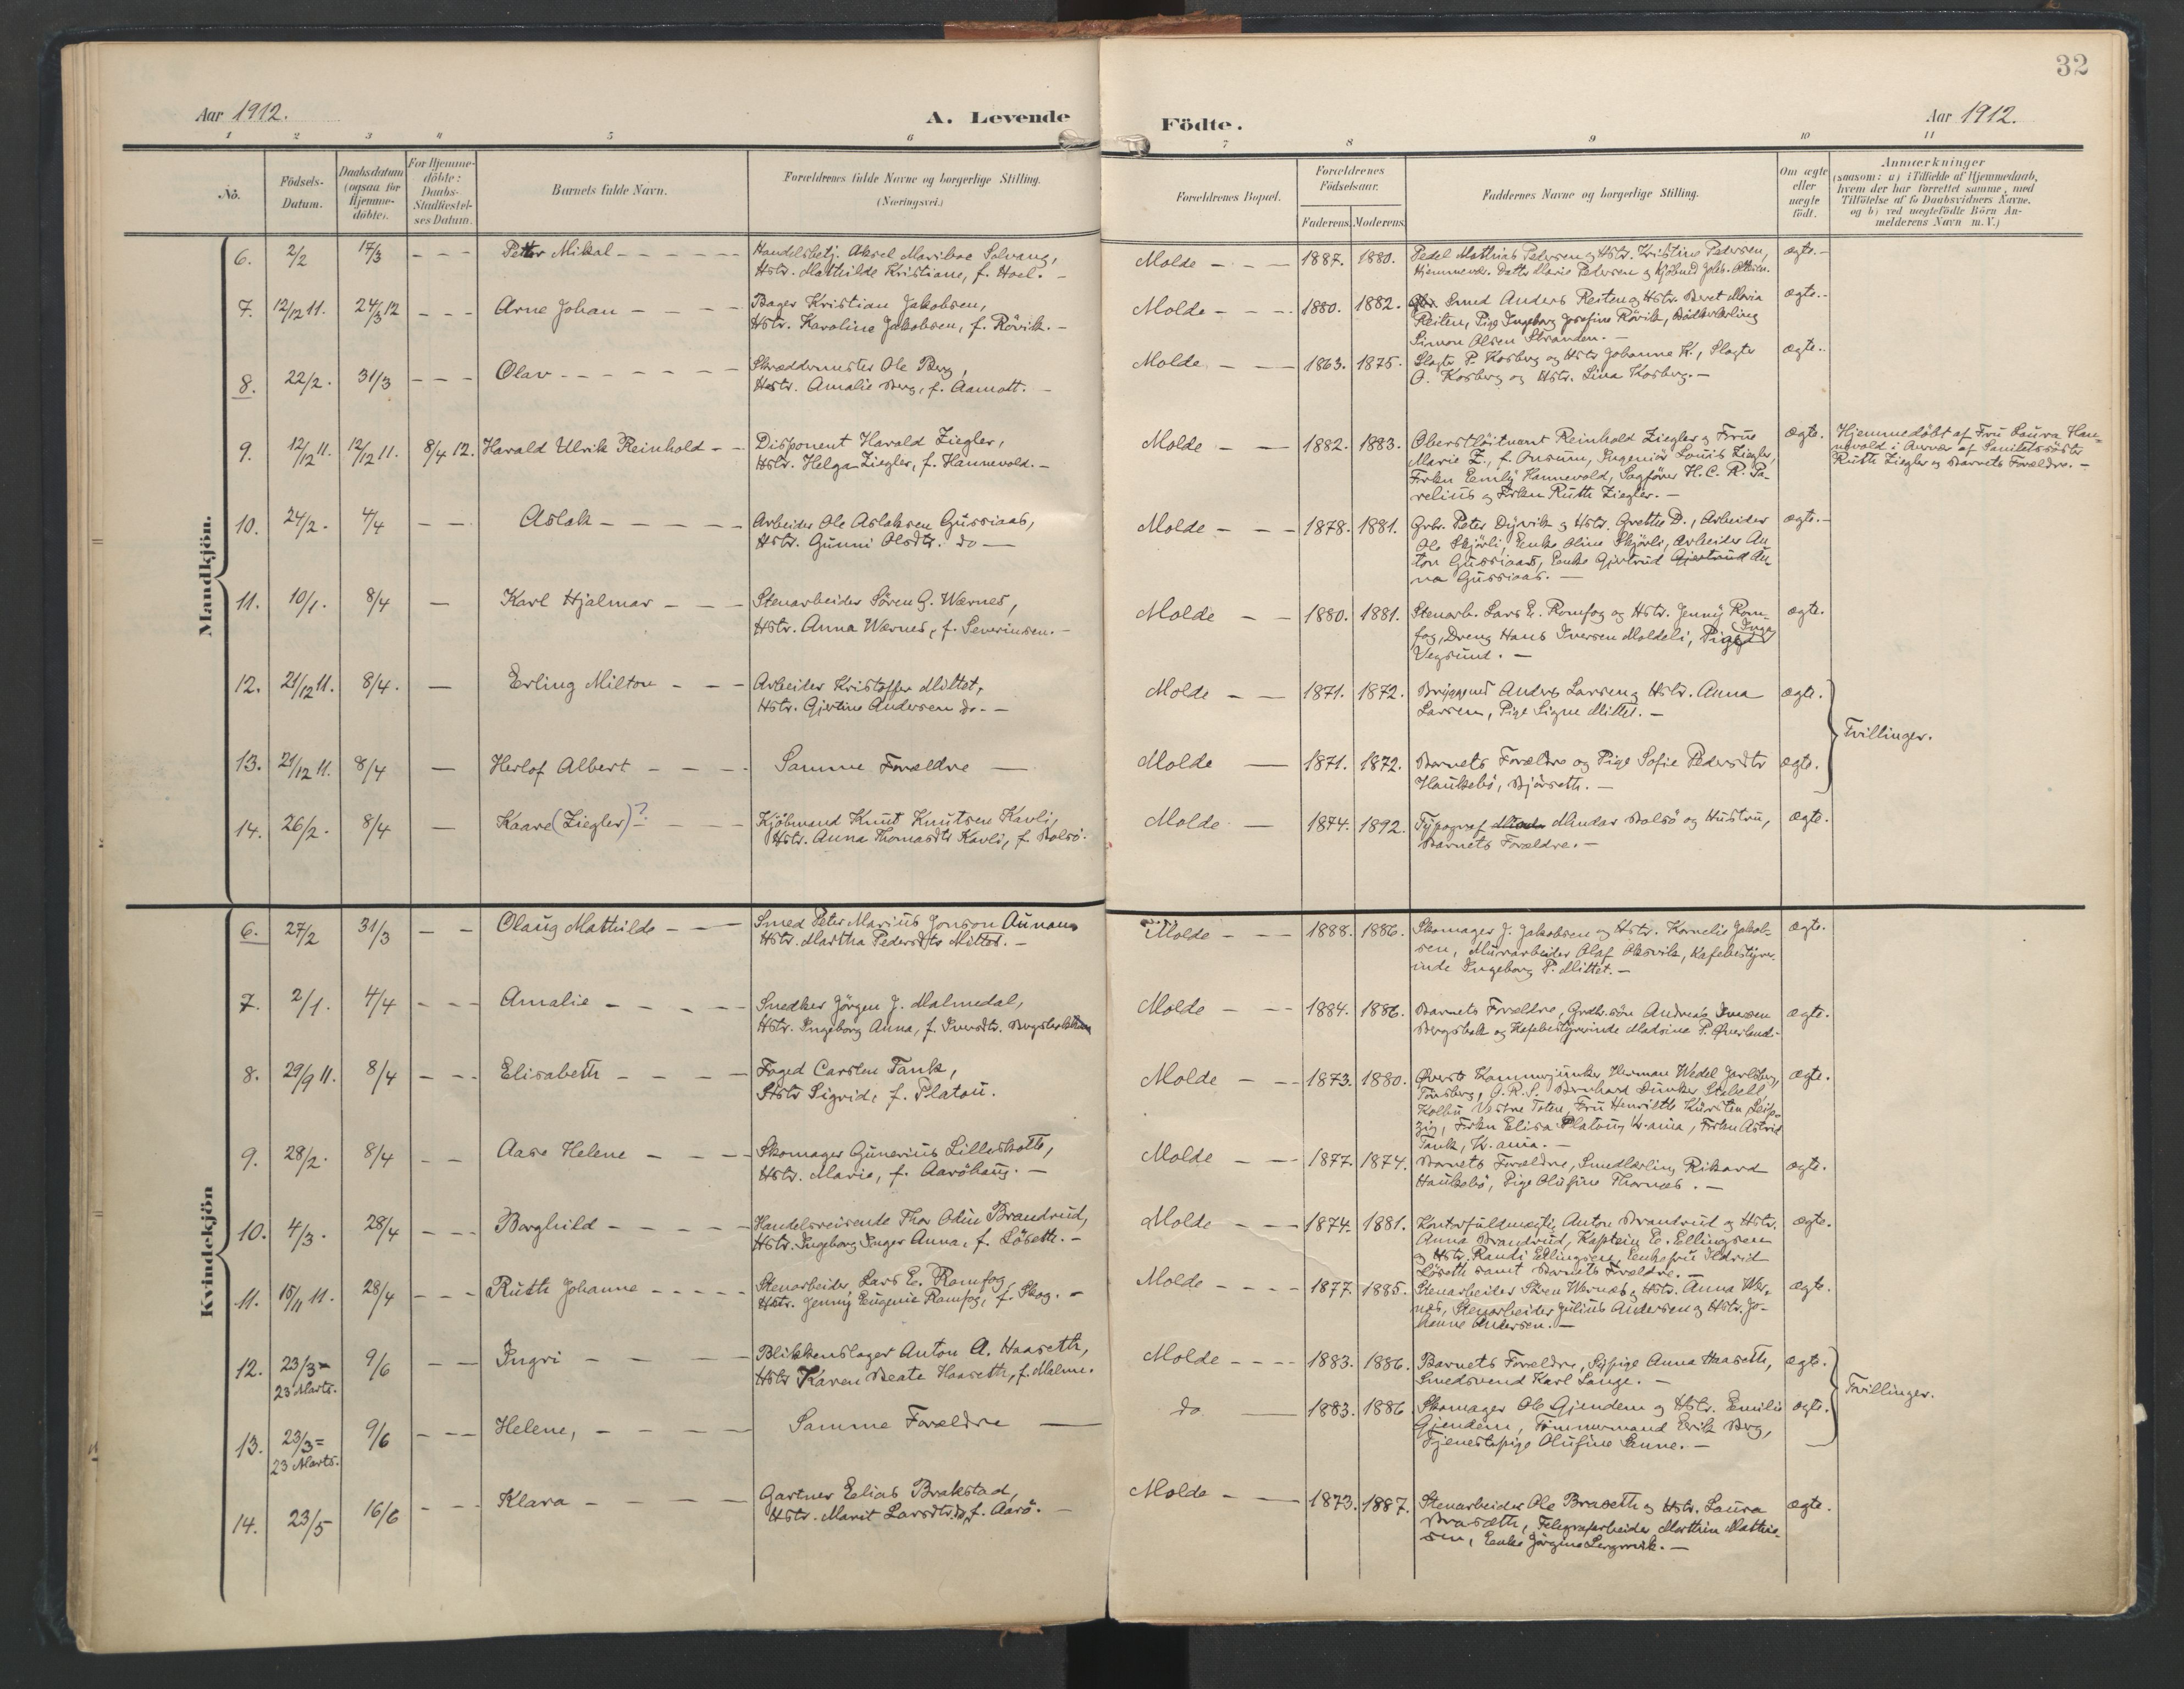 32
Aar 1912.
A. Levende Födte.
Aar 1912.
1 2 3 4 5 6 7 8 9 10 11
No.
Födsels-Datum.
Daabsdatum (ogsaa for Hjemme-döbte).
For Hjemme-döbte: Daabs-Stadfæstel-ses Datum.
Barnets fulde Navn.
Forældrenes fulde Navne og borgerlige Stilling.
(Næringsvei.)
Forældrenes Bopæl.
Forældrenes Födselsaar.
Faderens. Moderens.
Faddernes Navne og borgerlige Stilling.
Om ægte eller uægte födt.
Anmærkninger
(saasom: a) i Tilfælde af Hjemmedaab,
hvem der har forrettet samme, med
Tilföielse af to Daabsvidners Navne,
og b) ved uægtefödte Börn An-
melderens Navn m. V.)
Mandkjön.
6. 2/2 17/3 - - - Petter Mikal - - -
Handelsbetj. Aksel Mariboe Solvang,
Hstr. Mathilde Kristiane, f. Hoel. -
Molde - - - 1887. 1880.
Pedel Mathias Pedersen og Hstr. Kristine Pedersen,
Hjemmevær. Datter Marie Pedersen og Kjöbmd Johs. Ottesen.
ægte.-
7. 12/12 11. 24/3 12 - - - Arne Johan - - -
Bager Kristian Jakobsen,
Hstr. Karoline Jakobsen, f. Rövik. -
Molde - - - 1880. 1882.
Smed Anders Reiten og Hstr. Beret Maria
Reiten, Pige Ingeborg Josefine Rövik, Bödkerlærling
Simon Olsen Stranden. -
ægte.-
8. 22/2. 31/3 - - - Olav - - -
Skræddermester Ole Berg,
Hstr. Amalie Berg, f. Aamott. -
Molde - - 1863. 1875.
Slagter P. Kosberg og Hstr Johanne K., Slagter
O. Kosberg og Hstr. Lina Kosberg. -
ægte.-
9. 12/12 11. 12/12 11. 8/4 12. Harald Ulrik Reinhold - -
Disponent Harald Ziegler,
Hstr. Helga Ziegler, f. Hannevold. -
Molde - - 1882. 1883.
Oberstlöitnant Reinhold Ziegler og Frue
Marie Z., f. Onsum, Ingeniör Louis Ziegler,
Frkn Emily Hannevold, Sagförer H. C. R. Pa-
relius og Frkn Ruth Ziegler. -
ægte.
Hjemmedöbt af Fru Laura Han-
nevold i Nærvær af Sanitetssöster
Ruth Ziegler og Barnets Forældre. -
10. 24/2. 4/4 - - Aslak - - -
Arbeider Ole Aslaksen Gussiaas,
Hstr. Gunni Olsdtr. do -
Molde - - - 1878. 1881.
Grbr. Peter Dyrvik og Hstr. Grethe D., Arbeider
Ole Skjörli, Enke Oline Skjörli, Arbeider An-
ton Gussiaas, Enke Gjertrud Gjertrud An-
na Gussiaas. -
ægte.-
11. 10/1. 8/4 - Karl Hjalmar - - -
Stenarbeider Sören G. Wærnes,
Hstr. Anna Wærnes, f. Severinsen. -
Molde - - 1880. 1881.
Stenarb. Lars E. Romfog og Hstr. Jenny Rom-
fog, Dreng Hans Iversen Moldeli, Pige Inga
Vegsund. -
ægte.
12. 21/12 11. 8/4. - Erling Milton - - -
Arbeider Kristoffer Mittet,
Hstr. Gjertine Andersen do. -
Molde - - 1871. 1872.
Bryggemd Anders Larsen og Hstr. Anna
Larsen, Pige Signe Mittet. -
ægte.
Tvillinger.
13. 21/12 11. 8/4 - Herlof Albert - - -
Samme Forældre -
Molde - 1871. 1872.
Barnets Forældre og Pige Sofie Pedersdtr
Haukebö, Björseth. -
ægte.
14. 26/2. 8/4 - Kaare (Ziegler)? - - -
Kjöbmand Knut Knutsen Kavli,
Hstr. Anna Thomasdtr Kavli, f. Bolsö.
Molde - 1874. 1892.
Typograf Mindas Bolsö og Hustru,
Barnets Forældre. -
ægte.
Kvindekjön
6. 27/2 31/3 - - Olaug Mathilde - -
Smed Peter Marius Jonson Aunan
Hstr. Martha Pedersdtr Mittet. -
Molde - - - 1888. 1886.
Skomager J. Jakobsen og Hstr. Kornelie Jakob-
sen, Murarbeider Olaf Oksvik, Kafebestyrer-
inde Ingeborg P. Mittet. -
ægte.
7. 2/1. 4/4 - - - Amalie - - -
Snedker Jörgen J. Malmedal,
Hstr. Ingeborg Anna, f. Iversdtr. Bergsbakken
Molde - - - 1884. 1886.
Barnets Forældre, Grdbr.sön Andreas Iversen
Bergsbak og Kafebestyrerinde Madsine P. Överland.-
ægte.
8. 29/9 11. 8/4 - - - Elisabeth - - -
Foged Carsten Tank,
Hstr Sigrid, f. Platou.
Molde - - - 1873. 1880.
Oberst Kammerjunker Herman Wedel Jarlsberg,
Tönsberg, O.R.S. Bernhard Dunker Stabell,
Kolbu Vestre Toten, Fru Henriette Kürsten Leip-
zig, Frkn Elisa Platou, Kr.ania, Frkn Astrid
Tank, Kr.ania. -
ægte.
9. 28/2. 8/4 - - Aase Helene - - -
Skomager Gunerius Lilleskotte,
Hstr. Marie, f. Aaröhaug. -
Molde - - - 1877. 1874.
Barnets Forældre, Smedlærling Rikard
Haukebö, Pige Olufine Thornæs. -
ægte.
10. 4/3. 28/4 - - - Borghild - - -
Handelsreisende Thor Odin Brandrud,
Hstr. Ingeborg Inger Anna, f. Löseth. -
Molde - - - 1874. 1881.
Kontorfuldmægtig Anton Brandrud og Hstr.
Anna Brandrud, Kaptein E. Ellingsen
og Hstr. Randi Ellingsen, Enkefru Ildrid
Löseth samt Barnets Forældre. -
ægte.
11. 15/11 11. 28/4 - - - Ruth Johanne - - -
Stenarbeider Lars E. Romfog,
Hstr. Jenny Eugenie Romfog, f. Skog. -
Molde - - - 1877. 1885.
Stenarbeider Sören Wærnes og Hstr. Anna Wær-
nes, Stenarbeider Julius Andersen og Hstr. Jo-
hanne Andersen. -
ægte.
12. 23/3 = 23 Marts. 9/6 - - Ingri - - -
Blikkenslager Anton A. Haaseth,
Hstr Karen Beate Haaseth, f. Malme.
Molde - - - 1883. 1886.
Barnets Forældre, Sypige Anna Haaseth,
Smedsvend Karl Lange. -
ægte.
Tvillinger.
13. 23/3 = 23 Marts. 9/6 - - - Helene, - - -
Samme Forældre -
do - 1883. 1886
Skomager Ole Gjendem og Hstr. Emilie
Gjendem, Tömmermand Erik Berg,
Tjenestepige Olufine Sanne. -
ægte.
14. 23/5 16/6 - - - Klara - - -
Gartner Elias Brakstad,
Hstr. Marit Larsdtr. do, f. Aarö. -
Molde - - 1873. 1887.
Stenarbeider Ole Braseth og Hstr. Laura
Braseth, Telegrafarbeider Marthin Mathis-
sen, Enke Jörgine
ægte.